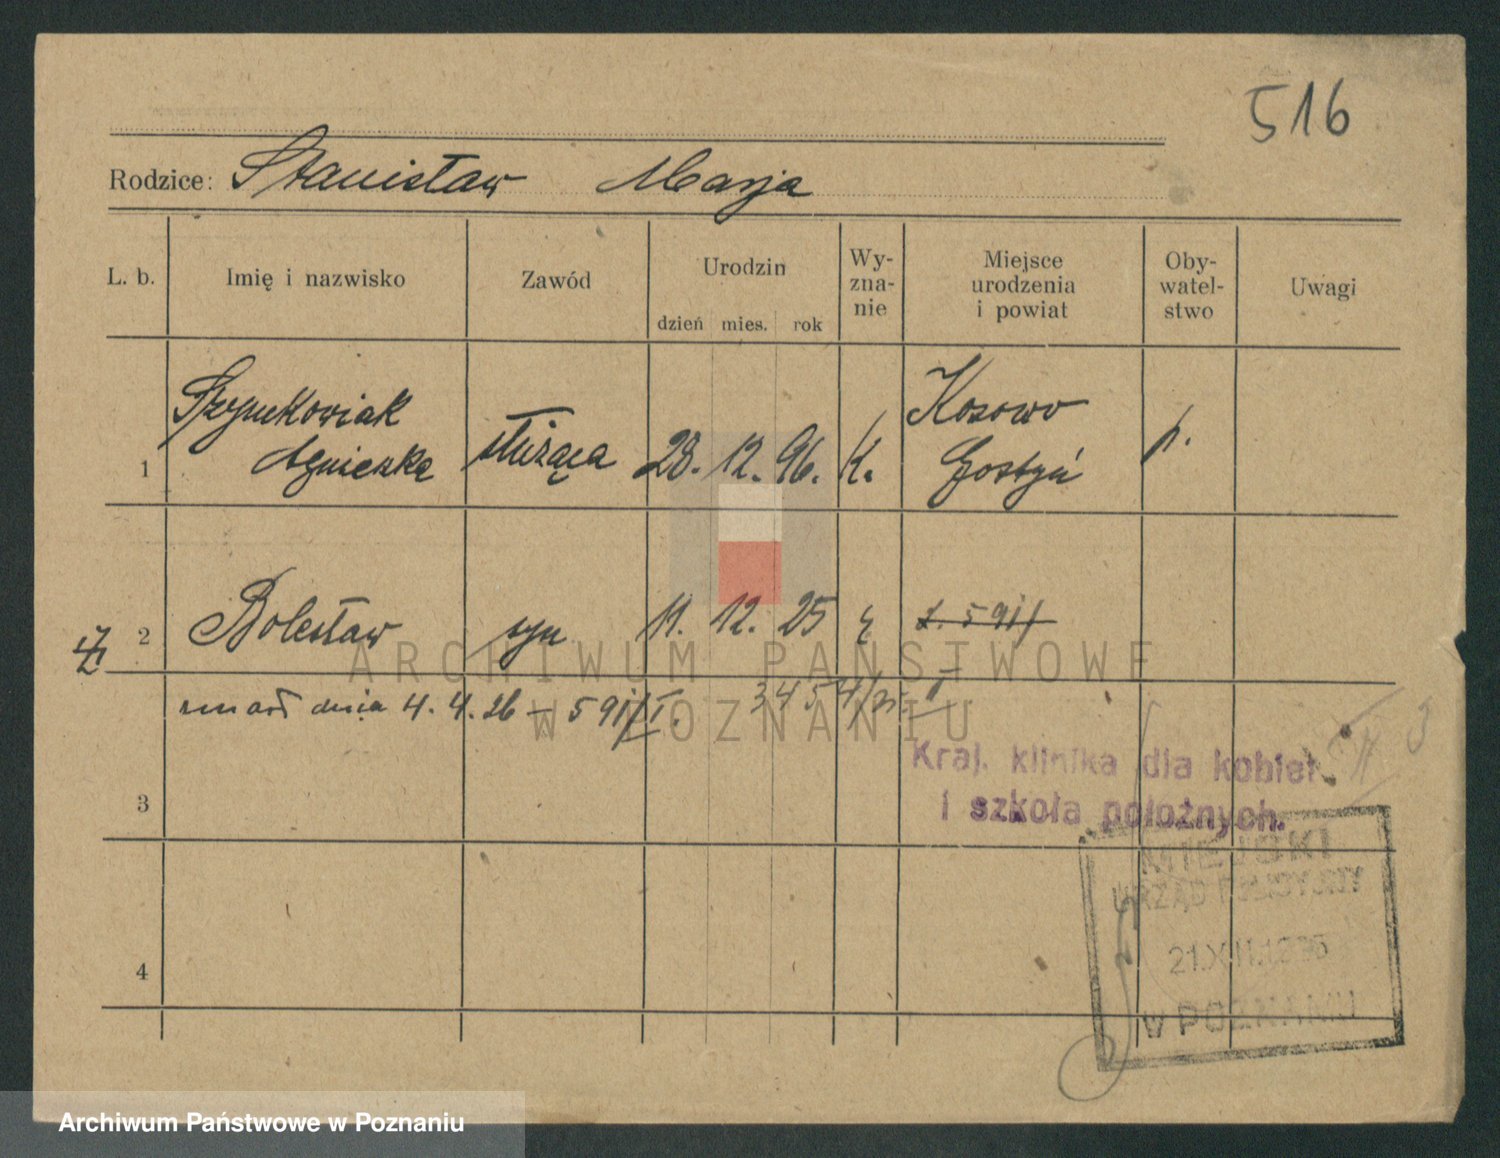 516
Rodzice: Stanisław Marja
L. b. Imię i nazwisko Zawód Urodzin Wy-zna-nie Miejsce urodzenia i powiat Oby-watel-stwo Uwagi
dzień mies. rok
1 Szymkowiak Agnieszka służąca 28. 12. 96. k. Kosowo Gostyń p.
2 Bolesław syn 11. 12. 25
zmarł dnia 4. 4. 26 — 591/I.
Kraj. klinika dla kobiet
i szkoła położnych.
3
MIEJSKI
URZĄD POLICYJNY
21.XII.1925
W POZNANIU
4
ARCHIWUM PAŃSTWOWE
W POZNANIU
Archiwum Państwowe w Poznaniu